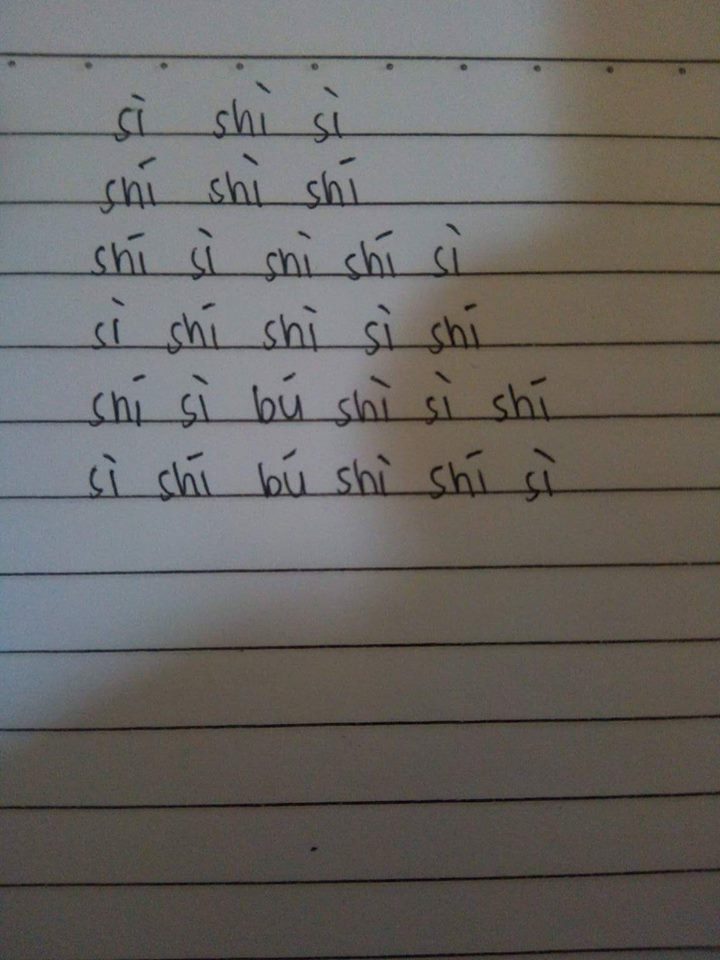 sì shì sì
shī shì shī
shī sì shì shī sì
sì shī shì sì shī
shī sì bú shì sì shī
sì shī bú shì shī sì